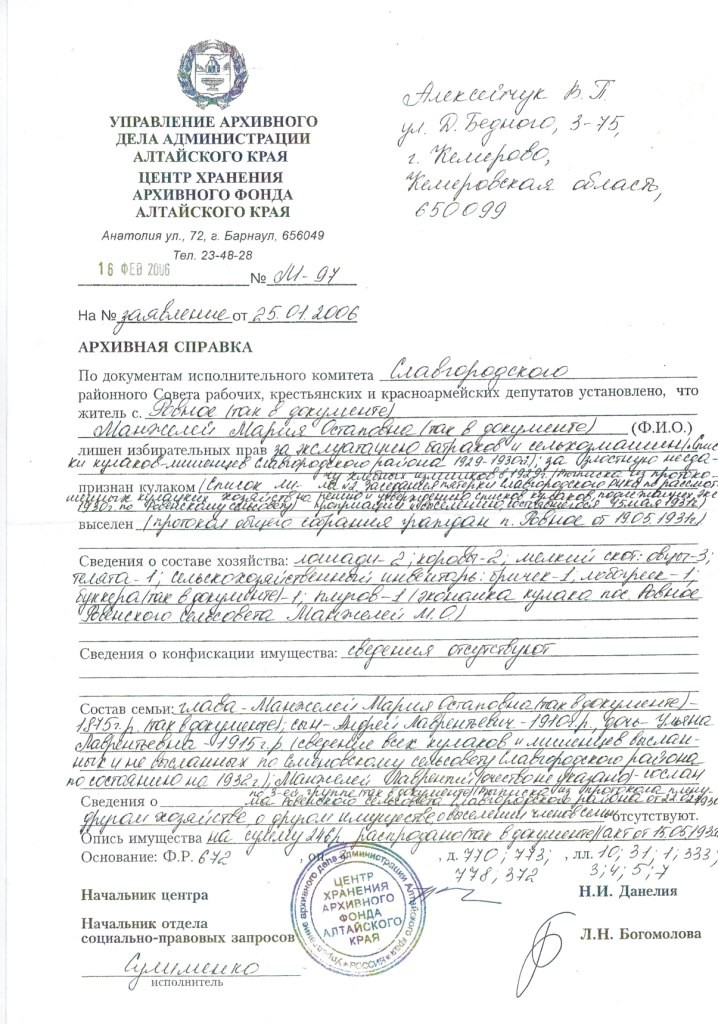 УПРАВЛЕНИЕ АРХИВНОГО
ДЕЛА АДМИНИСТРАЦИИ
АЛТАЙСКОГО КРАЯ
ЦЕНТР ХРАНЕНИЯ
АРХИВНОГО ФОНДА
АЛТАЙСКОГО КРАЯ
Анатолия ул., 72, г. Барнаул, 656049
Тел. 23-48-28
16 ФЕВ 2006
№ М-97
Алексейчук В.П.
ул. Д. Бедного, 3-75,
г. Кемерово,
Кемеровская область,
650099
На № заявление от 25.01.2006
АРХИВНАЯ СПРАВКА
По документам исполнительного комитета Славгородского
районного Совета рабочих, крестьянских и красноармейских депутатов установлено, что
житель с. Ровное (так в документе)
Манжелей Мария Остаповна (так в документе) (Ф.И.О.)
лишен избирательных прав за эксплуатацию батраков и сельхозмашин (Спис-
ки кулаков-лишенцев Славгородского района 1929-1930гг.); за злостную несда-
чу хлебных излишков в 1929г. (Выписка из протоко-
признан кулаком (список
ла №2 заседания пятерки Славгородского рика по рассмот-
1930г. по Ровенскому сельсовету)
выселен (протокол общего собрания граждан п. Ровное от 19.05.1931г.)
Сведения о составе хозяйства: лошади-2; коровы-2; мелкий скот: овцы-3;
телята-1; сельскохозяйственный инвентарь: бричек-1, лобогреек-1;
буккера (так в документе)-1; плугов-1 (экономика кулака пос. Ровное
Ровенского сельсовета Манжелей М.О.)
Сведения о конфискации имущества: сведения отсутствуют
Состав семьи: глава-Манжелей Мария Остаповна (так в документе)-
1875г.р. (так в документе); сын-Андрей Лаврентьевич-1910г.р., дочь-Ульяна
Лаврентьевна-1915г.р. (сведение всех кулаков и лишенцев выслан-
ных и не высланных по Славгородского района
по состоянию на 1932г.); Манжелей Лаврентий (отчество не указано)-сослан
по 3-ей группе (так в документе) (Выписка из протокола
Сведения о
Ровенского сельсовета Славгородского района от
другом хозяйстве о другом имуществе о выселении членов семьи отсутствуют.
Опись имущества на сумму 246р. распродано (так в документе) (акт от 15.05.193
Основание: Ф.Р. 672, оп , д. 770; 773; 778; 372, лл. 10; 31; 1; 333; 3; 4; 5; 7
Начальник центра
Н.И. Данелия
Начальник отдела
социально-правовых запросов
Л.Н. Богомолова
Сулименко
исполнитель
ЦЕНТР
ХРАНЕНИЯ
АРХИВНОГО
ФОНДА
АЛТАЙСКОГО
КРАЯ
Управление архивного дела администрации Алтайского края
РОССИЯ